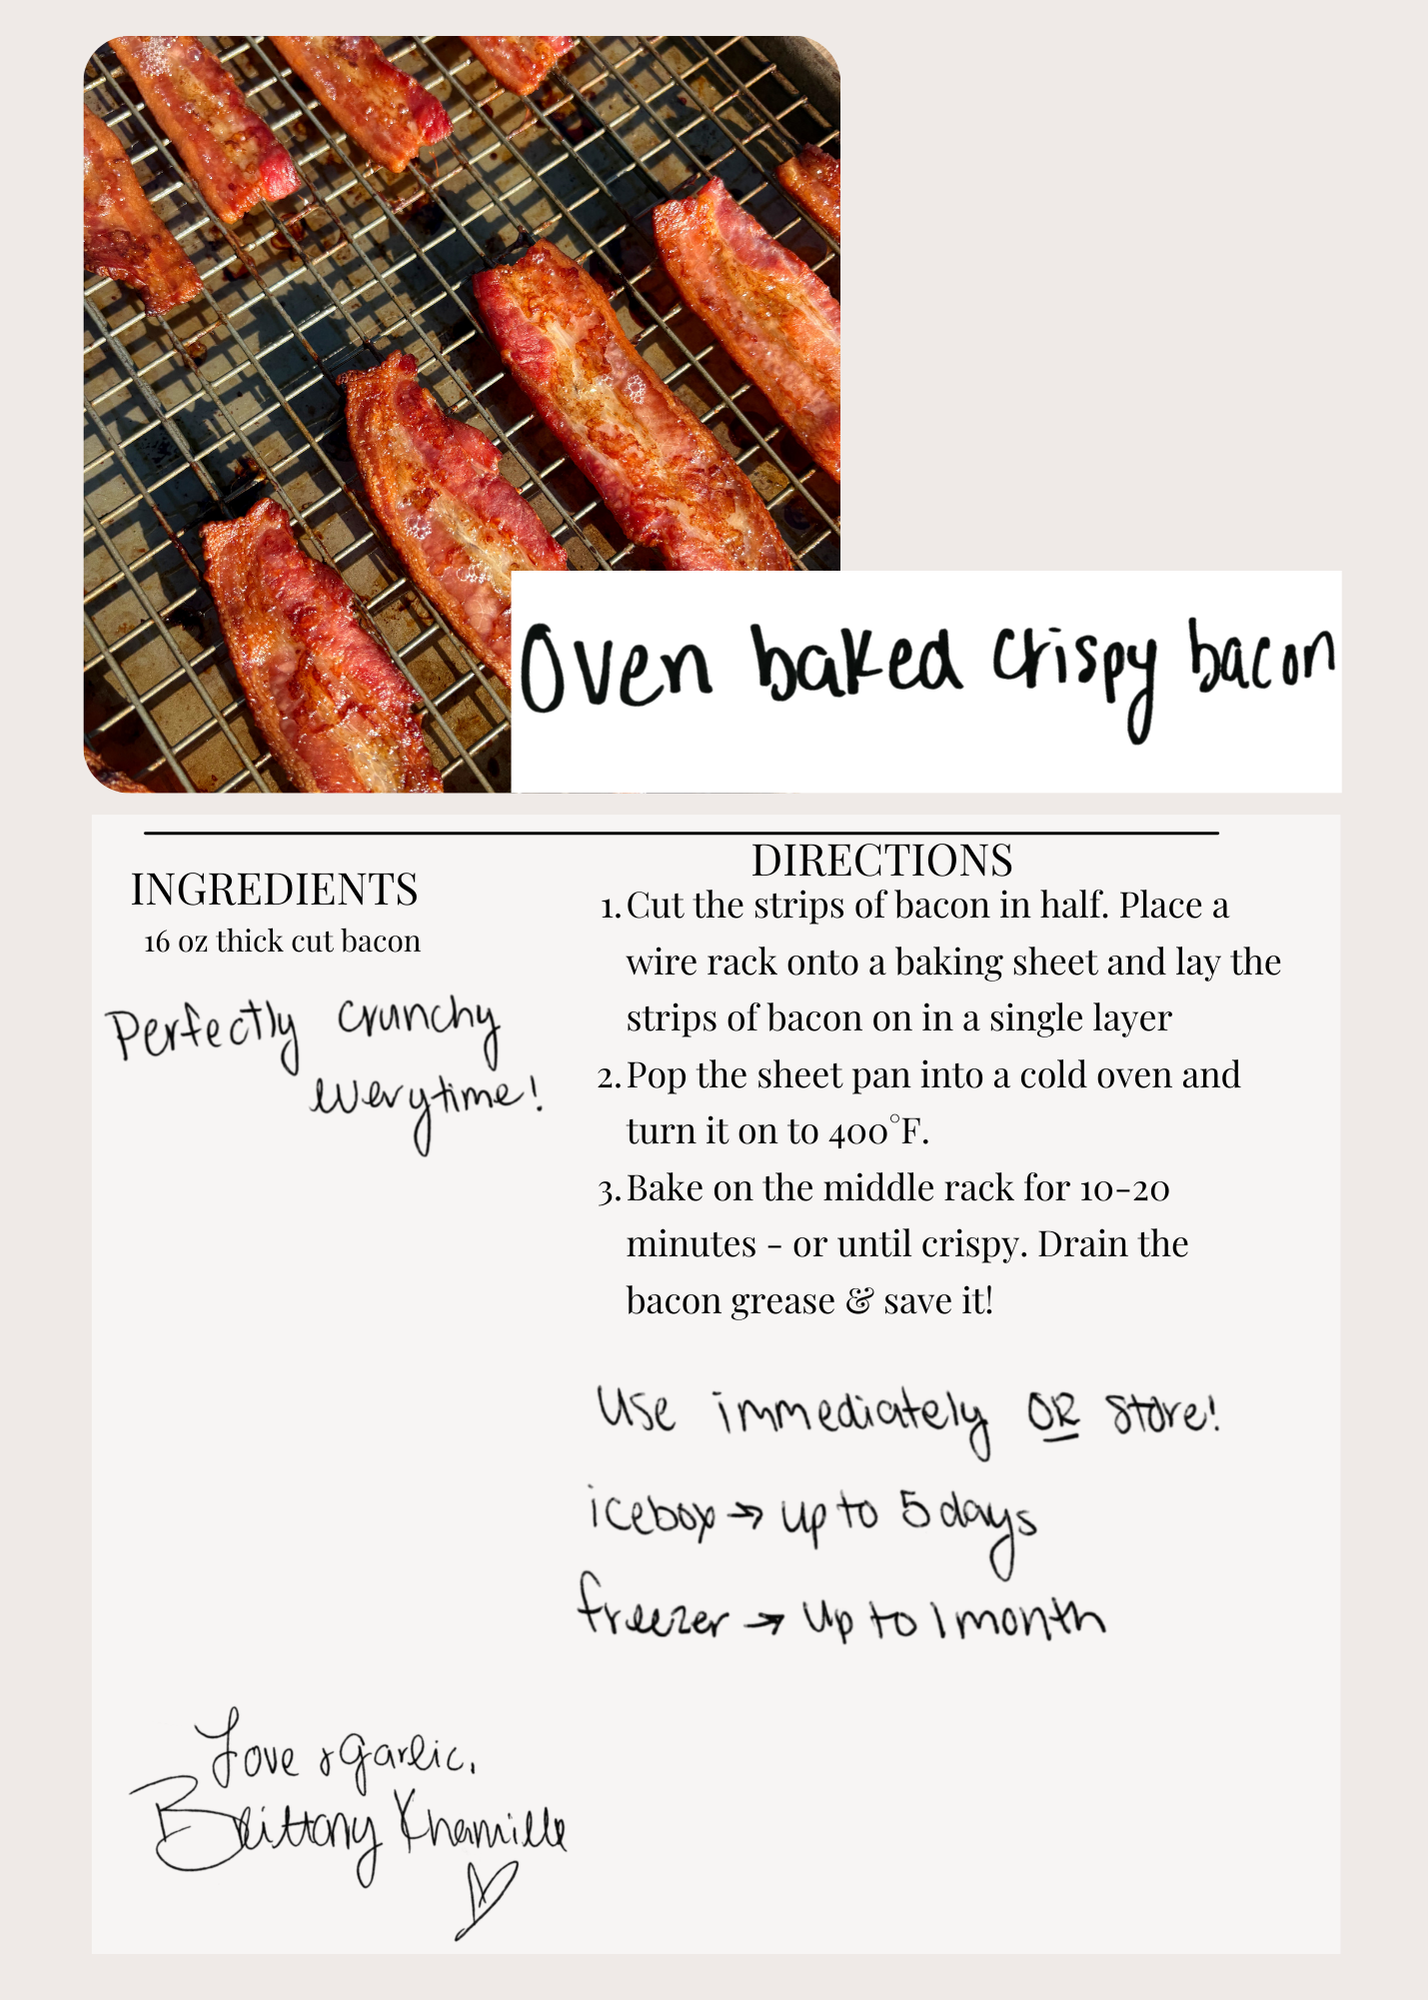 Oven baked crispy bacon
INGREDIENTS
16 oz thick cut bacon
Perfectly crunchy
everytime!
DIRECTIONS
1. Cut the strips of bacon in half. Place a
wire rack onto a baking sheet and lay the
strips of bacon on in a single layer
2. Pop the sheet pan into a cold oven and
turn it on to 400°F.
3. Bake on the middle rack for 10-20
minutes - or until crispy. Drain the
bacon grease & save it!
Use immediately OR store!
icebox → up to 5 days
freezer → up to 1 month
Love & garlic,
Brittany Khamille